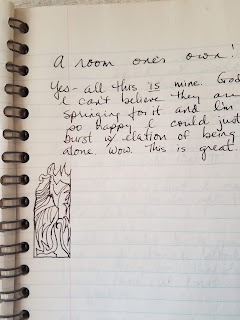 a room ones own!
Yes- all this is mine. God
I can't believe they are
springing for it and I'm
so happy I could just
burst w/ elation of being
alone. Wow. This is great.